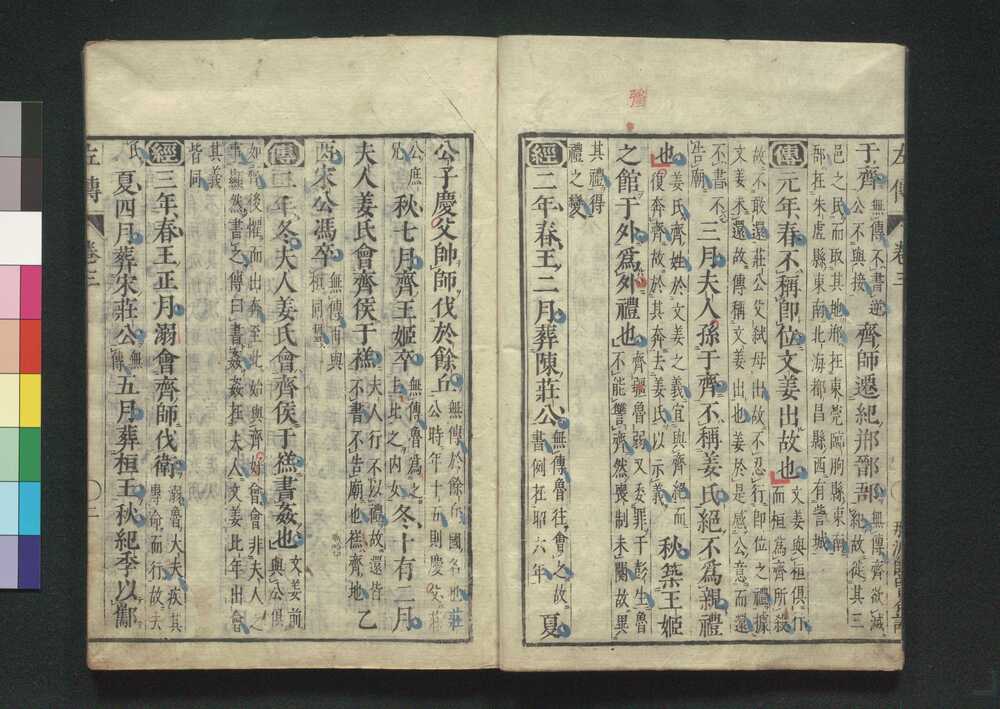 彌
左傳 卷三
于齊 無傳不書逆公不與接 齊師遷紀郱鄑郚 無傳齊欲滅紀故徙其三
邑之民而取其地郱在東莞臨朐縣東南
郚在朱虛縣東南北海都昌縣西有訾城
傳元年春不稱即位文姜出故也 文姜與桓俱行而桓為齊所殺
故不敢還莊公父弒母出故不忍行即位之禮據
文姜未還故傳稱文姜出也姜於是感公意而還
不書不告廟 三月夫人孫于齊不稱姜氏絕不爲親禮
也 姜氏齊姓於文姜之義宜與齊絕而復奔齊故於其奔去姜氏以示義 秋築王姬
之館于外爲外禮也 齊彊魯弱又委罪于彭生魯不能讐齊然喪制未闋故異
其禮得禮之變
經二年春王二月葬陳莊公 無傳魯往會之故書例在昭六年 夏
公子慶父帥師伐於餘丘 無傳於餘丘國名也莊公時年十五則慶父莊
公庶兄 秋七月齊王姬卒 無傳魯爲之主比之內女 冬十有二月
夫人姜氏會齊侯于禚 夫人行不以禮故還皆不書不告廟也禚齊地 乙
酉宋公馮卒 無傳再與桓同盟
傳二年冬夫人姜氏會齊侯于禚書姦也 文姜前與公俱
如齊後懼而出奔至此始與齊好會會非夫人之
事顯然書之傳曰書姦姦在夫人文姜比年出會
其義皆同
經三年春王正月溺會齊師伐衛 溺魯大夫疾其專命而行故去
氏 夏四月葬宋莊公 無傳 五月葬桓王秋紀季以酅
左傳 卷三 〇二